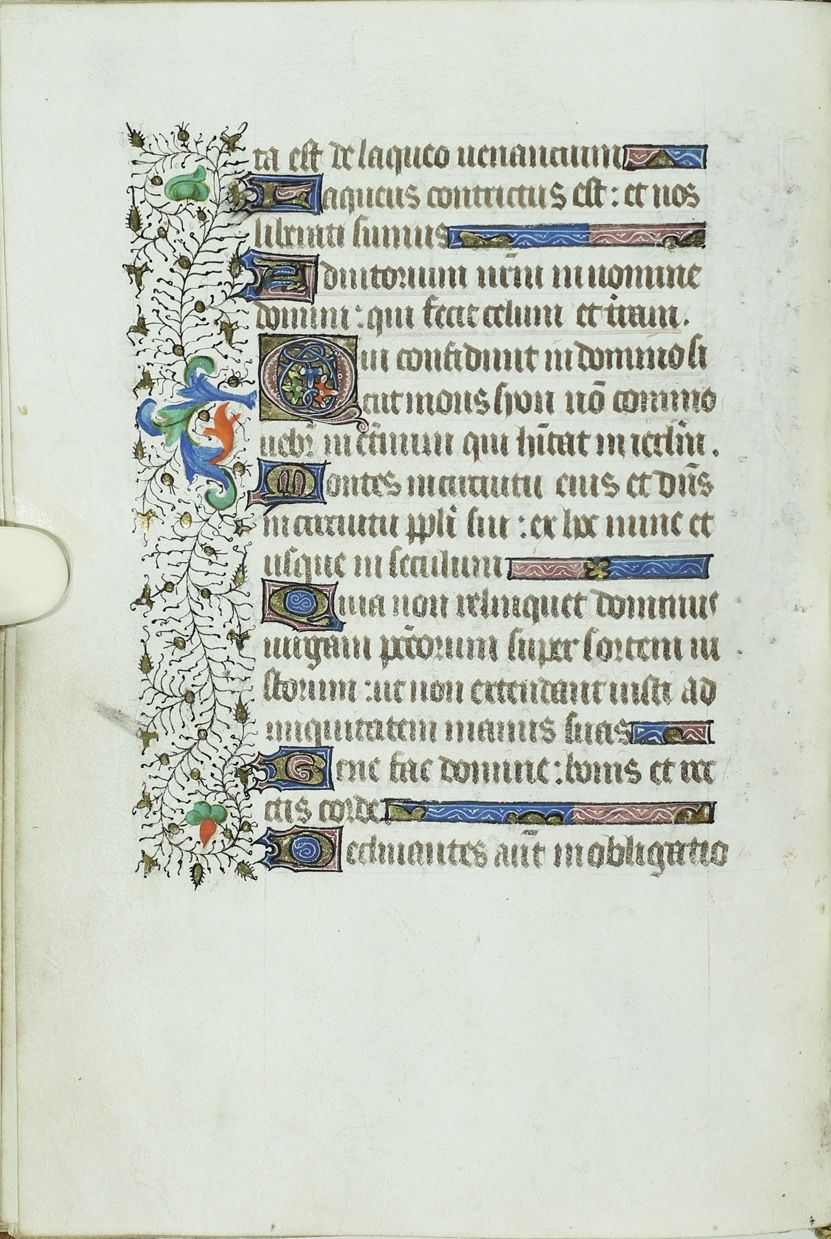 ta est de laqueo uenancium
Laqueus contritus est : et nos
liberati sumus
Adiutorium nr̄m in nomine
domini : qui fecit celum et t̄ram .
Qui confidunt in domino si
cut mons syon nō commo
uebr̄ in et̄num qui hītat in ierl̄m .
Montes in circuitu eius et dn̄s
in circuitu ppl̄i sui : ex hoc nunc et
usque in seculum
Quia non relinquet dominus
uirgam pct̄orum super sortem iu
storum : ut non extendant iusti ad
iniquitatem manus suas
Bene fac domine : bonis et rec
ctis corde
Declinantes aut̄ in obligatio